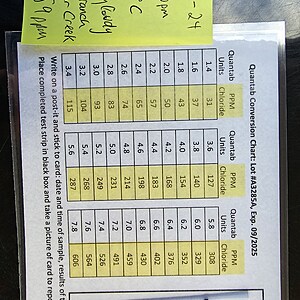 - 24
pm
°C
Cloudy
ranch
Creek
9 ppm
Quantab Conversion Chart: Lot #A3285A, Exp. 09/2025
Quantab Units PPM Chloride Quantab Units PPM Chloride Quantab Units PPM Chloride
1.4 31 3.6 127 5.8 308
1.6 37 3.8 140 6.0 329
1.8 43 4.0 154 6.2 352
2.0 50 4.2 168 6.4 376
2.2 57 4.4 183 6.6 402
2.4 65 4.6 198 6.8 430
2.6 74 4.8 214 7.0 459
2.8 83 5.0 231 7.2 491
3.0 93 5.2 249 7.4 526
3.2 104 5.4 268 7.6 564
3.4 115 5.6 287 7.8 606
Write on a post-it and stick to card: date and time of sample, results of t
Place completed test strip in black box and take a picture of card to repo